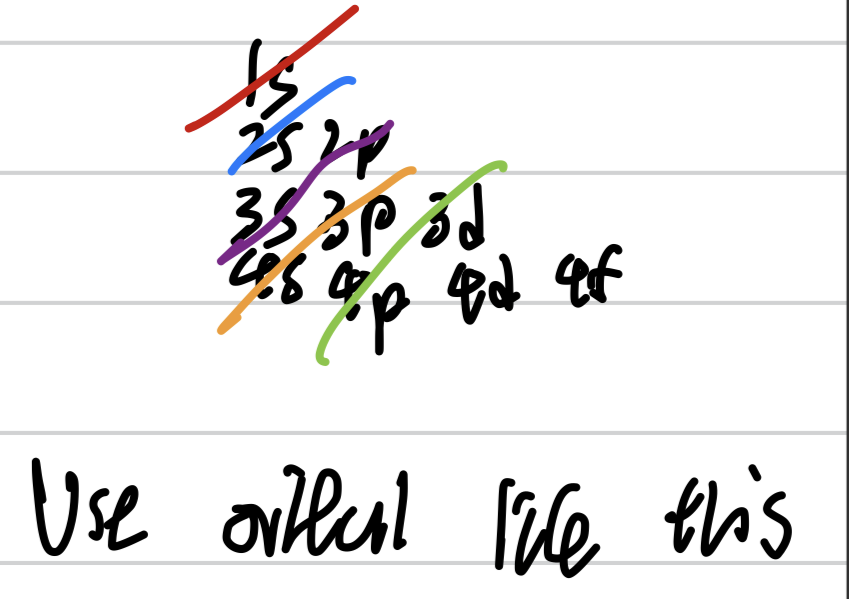 1s
2s 2p
3s 3p 3d
4s 4p 4d 4f
Use orbital like this